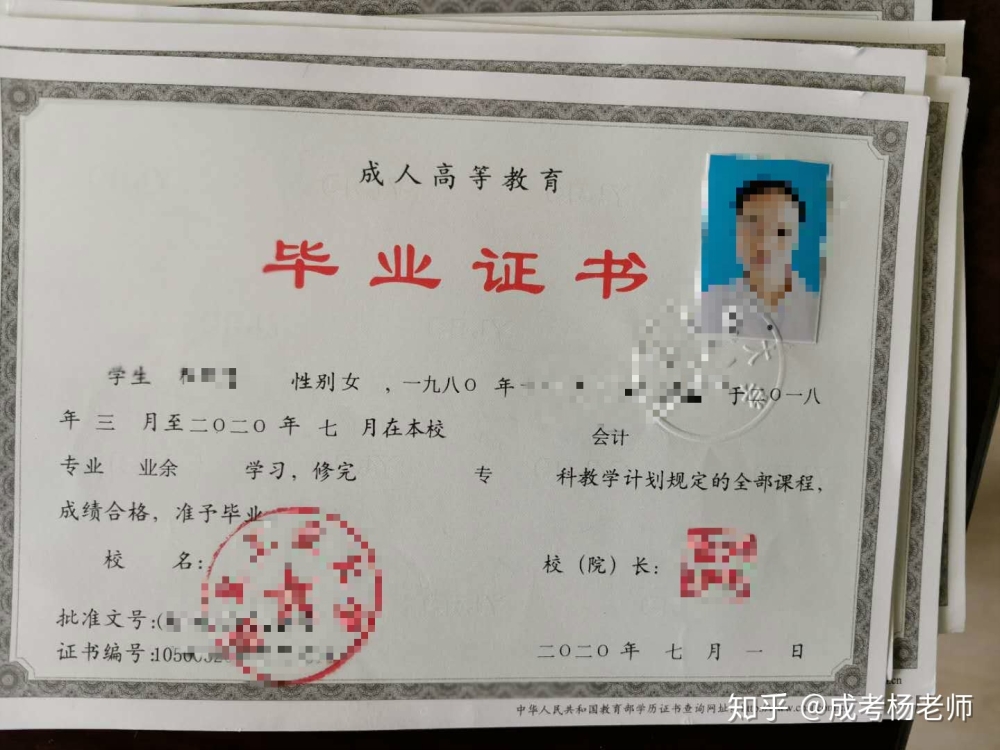 成人高等教育
毕业证书
学生 性别女 ，一九八〇 年 于二〇一八
年 三 月至二〇二〇 年 七 月在本校 会计
专业 业余 学习，修完 专 科教学计划规定的全部课程，
成绩合格，准予毕业
校 名： 校（院）长：
批准文号：(
证书编号：105
二〇二〇 年 七 月 一 日
中华人民共和国教育部学历证书查询网址
知乎 @成考杨老师